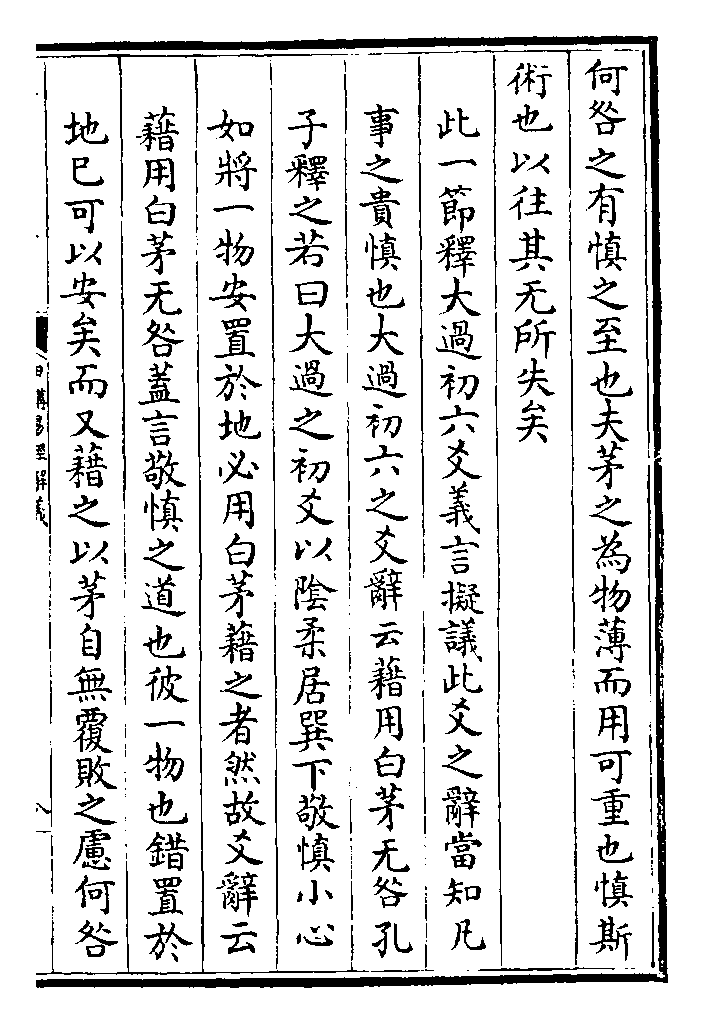 何咎之有慎之至也夫茅之為物薄而用可重也慎斯
術也以往其无所失矣
此一節釋大過初六爻義言擬議此爻之辭當知凡
事之貴慎也大過初六之爻辭云藉用白茅无咎孔
子釋之若曰大過之初爻以陰柔居巽下敬慎小心
如將一物安置於地必用白茅藉之者然故爻辭云
藉用白茅无咎蓋言敬慎之道也彼一物也錯置於
地已可以安矣而又藉之以茅自無覆敗之慮何咎
日講易經解義
八